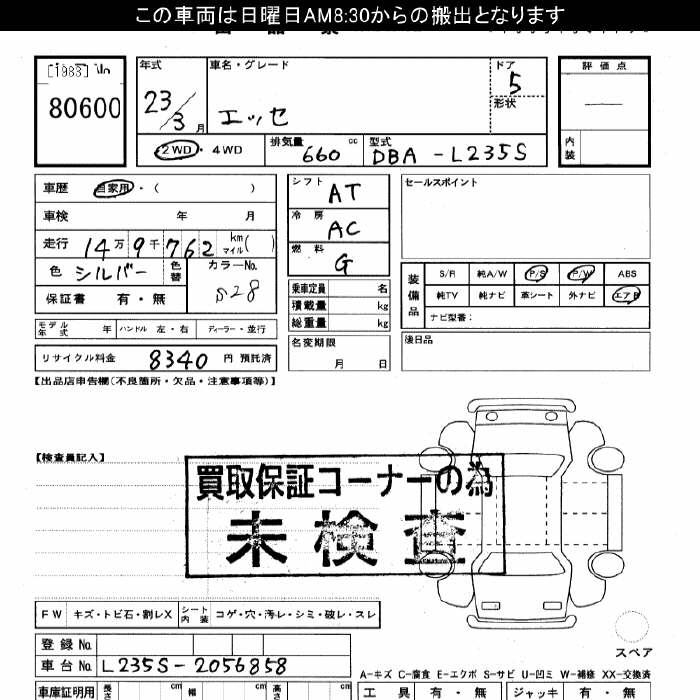 この車両は日曜日AM8:30からの搬出となります
[1983]
80600
年式
23/3月
車名・グレード
エッセ
ドア
5
形状
評価点
内装
2WD・4WD
排気量 660 cc
型式 DBA-L235S
車歴 自家用・( )
車検 年 月
走行 14万9千762 km マイル( )
色 シルバー 色替
カラーNo. S28
保証書 有・無
シフト AT
冷房 AC
燃料 G
乗車定員 名
積載量 kg
総重量 kg
セールスポイント
装備品
S/R 純A/W P/S P/W ABS
純TV 純ナビ 革シート 外ナビ エアB
ナビ型番：
モデル年式 年 ハンドル 左・右 ディーラー・並行
名変期限
月 日
後日品
リサイクル料金 8340 円 預託済
【出品店申告欄(不良箇所・欠品・注意事項等)】
【検査員記入】
買取保証コーナーの為
未検査
FW キズ・トビ石・割レX シート内装 コゲ・穴・汚レ・シミ・破レ・スレ
登録No.
車台No. L235S-2056858
スペア
A-キズ C-腐食 E-エクボ S-サビ U-凹ミ W-補修 XX-交換済
車庫証明用 長さ cm 幅 cm 高さ cm
工具 有・無 ジャッキ 有・無